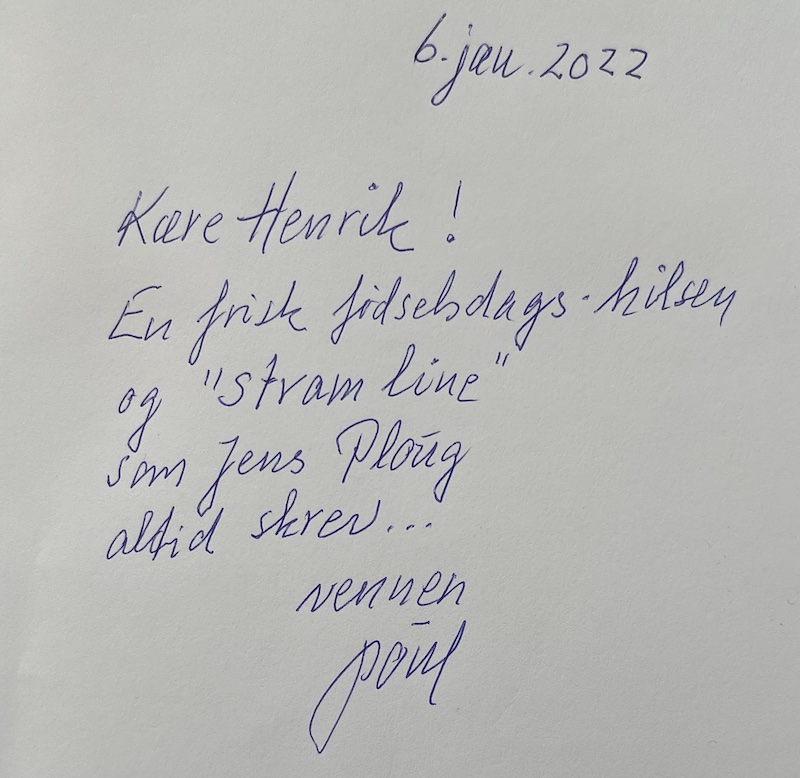 6. jan. 2022
Kære Henrik!
En frisk fødselsdags-hilsen
og "stram line"
som Jens Ploug
altid skrev...
vennen
poul